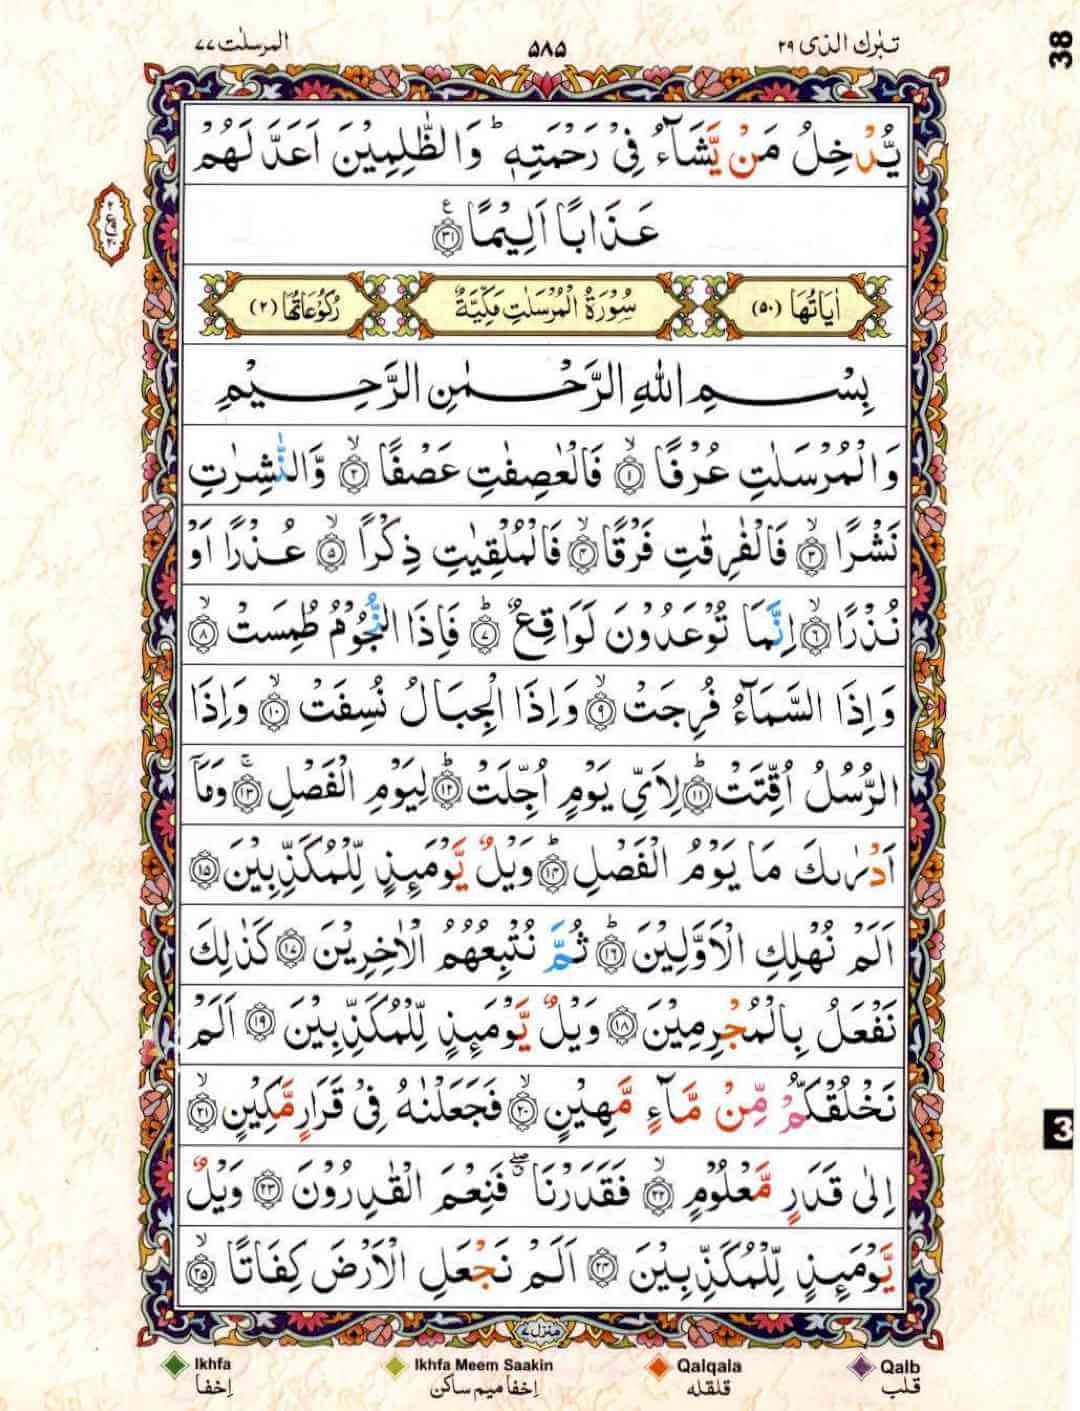 تبٰرك الذی ٢٩
٥٨٥
المرسلٰت ٧٧
38
يُّدْخِلُ مَنْ يَّشَآءُ فِيْ رَحْمَتِهٖ ؕ وَالظّٰلِمِيْنَ اَعَدَّ لَهُمْ
عَذَابًا اَلِيْمًا ﴿٣١﴾ ع
اٰيَاتُهَا (٥٠)
سُوْرَةُ الْمُرْسَلٰتِ مَكِّيَّةٌ
رُكُوْعَاتُهَا (٢)
بِسْمِ اللّٰهِ الرَّحْمٰنِ الرَّحِيْمِ
وَالْمُرْسَلٰتِ عُرْفًا ﴿١﴾ ۙ فَالْعٰصِفٰتِ عَصْفًا ﴿٢﴾ ۙ وَّالنّٰشِرٰتِ
نَشْرًا ﴿٣﴾ ۙ فَالْفٰرِقٰتِ فَرْقًا ﴿٤﴾ ۙ فَالْمُلْقِيٰتِ ذِكْرًا ﴿٥﴾ ۙ عُذْرًا اَوْ
نُذْرًا ﴿٦﴾ ۙ اِنَّمَا تُوْعَدُوْنَ لَوَاقِعٌ ﴿٧﴾ ؕ فَاِذَا النُّجُوْمُ طُمِسَتْ ﴿٨﴾ ۙ
وَاِذَا السَّمَآءُ فُرِجَتْ ﴿٩﴾ ۙ وَاِذَا الْجِبَالُ نُسِفَتْ ﴿١٠﴾ ۙ وَاِذَا
الرُّسُلُ اُقِّتَتْ ﴿١١﴾ ؕ لِاَيِّ يَوْمٍ اُجِّلَتْ ﴿١٢﴾ ؕ لِيَوْمِ الْفَصْلِ ﴿١٣﴾ ۚ وَمَآ
اَدْرٰىكَ مَا يَوْمُ الْفَصْلِ ﴿١٤﴾ ؕ وَيْلٌ يَّوْمَئِذٍ لِّلْمُكَذِّبِيْنَ ﴿١٥﴾
اَلَمْ نُهْلِكِ الْاَوَّلِيْنَ ﴿١٦﴾ ؕ ثُمَّ نُتْبِعُهُمُ الْاٰخِرِيْنَ ﴿١٧﴾ كَذٰلِكَ
نَفْعَلُ بِالْمُجْرِمِيْنَ ﴿١٨﴾ وَيْلٌ يَّوْمَئِذٍ لِّلْمُكَذِّبِيْنَ ﴿١٩﴾ اَلَمْ
نَخْلُقْكُّمْ مِّنْ مَّآءٍ مَّهِيْنٍ ﴿٢٠﴾ ۙ فَجَعَلْنٰهُ فِيْ قَرَارٍ مَّكِيْنٍ ﴿٢١﴾ ۙ
اِلٰى قَدَرٍ مَّعْلُوْمٍ ﴿٢٢﴾ ۙ فَقَدَرْنَا ۖ فَنِعْمَ الْقٰدِرُوْنَ ﴿٢٣﴾ وَيْلٌ
يَّوْمَئِذٍ لِّلْمُكَذِّبِيْنَ ﴿٢٤﴾ اَلَمْ نَجْعَلِ الْاَرْضَ كِفَاتًا ﴿٢٥﴾ ۙ
3
منزل ٧
Ikhfa
اِخفا
Ikhfa Meem Saakin
اِخفا میم ساکن
Qalqala
قلقله
Qalb
قلب